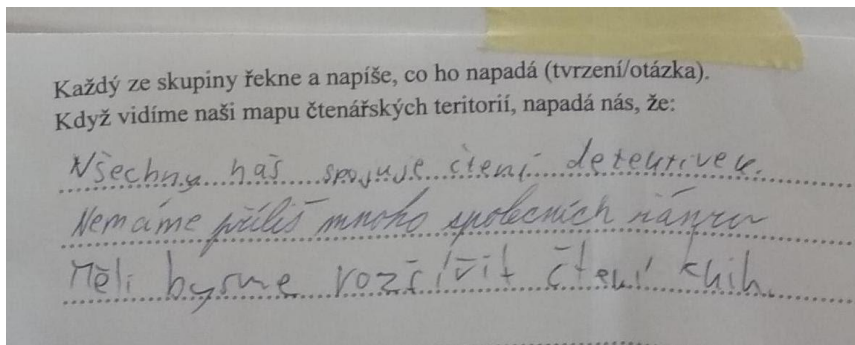 Každý ze skupiny řekne a napíše, co ho napadá (tvrzení/otázka).
Když vidíme naši mapu čtenářských teritorií, napadá nás, že:
Všechny nás spojuje čtení detektivek.
Nemáme příliš mnoho společních
Měli bysme rozšířit čtení knih.